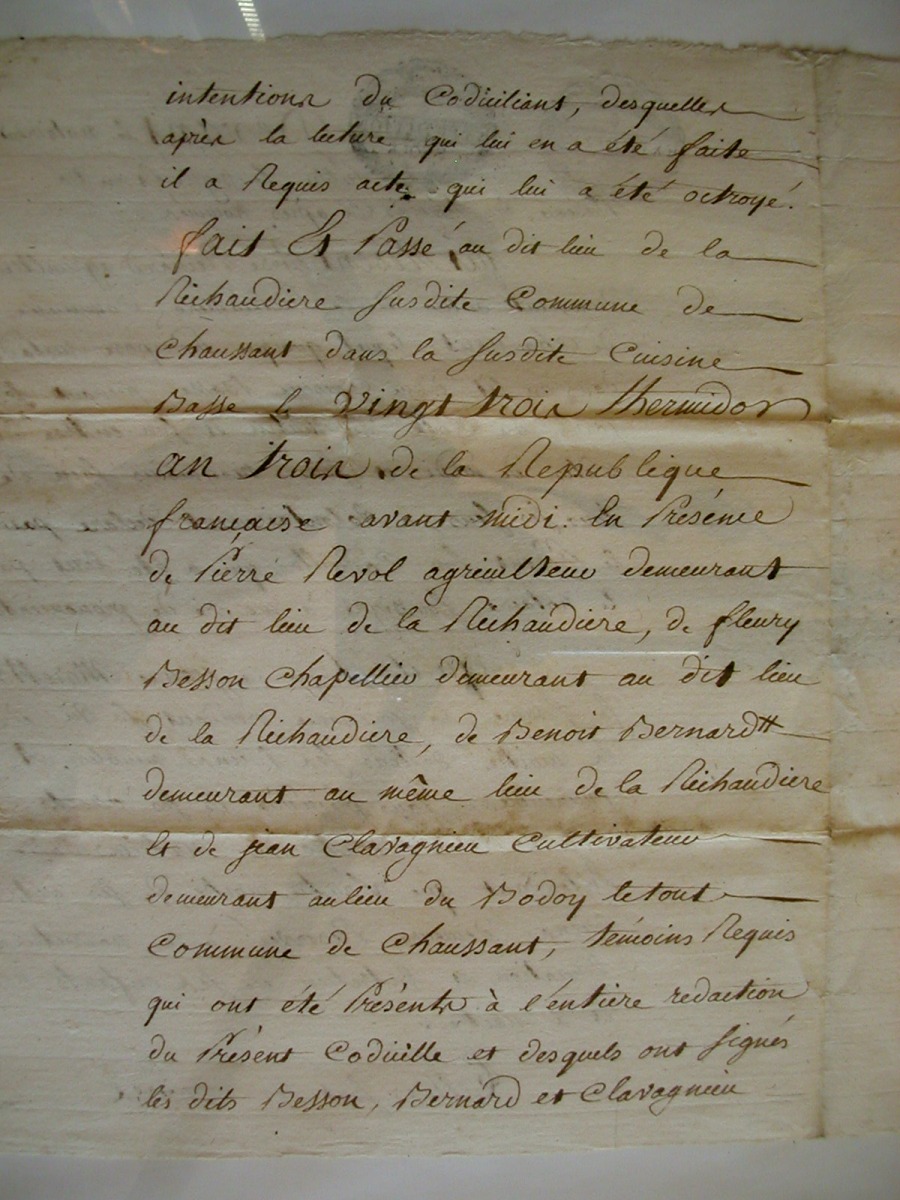 intentions du Codiciliant, desquelles
après la lecture qui lui en a été faite
il a Requis acte qui lui a été octroyé.
fait Et Passé au dit lieu de la
Richaudiere susdite Commune de
Chaussant dans la susdite Cuisine
Basse le vingt trois thermidor
an trois de la Republique
française avant midi. En Présence
de Pierre Revol agriculteur demeurant
au dit lieu de la Richaudière, de fleury
Besson Chapellier demeurant au dit lieu
de la Richaudière, de Benoit Bernard
demeurant au même lieu de la Richaudière
Et de jean Clavagnieu Cultivateur
demeurant au lieu du Bodoy le tout
Commune de Chaussant, témoins Requis
qui ont été Présents à l'entière redaction
du Présent Codicille et desquels ont signés
les dits Besson, Bernard et Clavagnieu